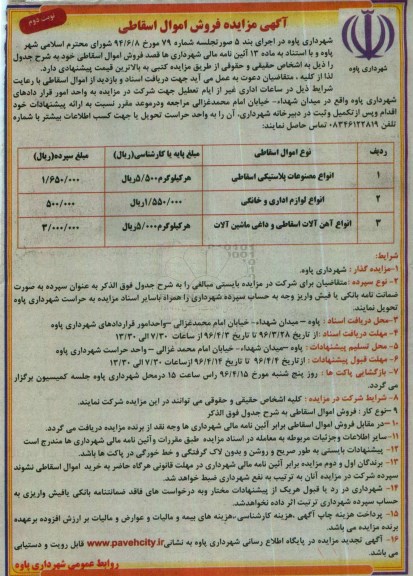 نوبت دوم
آگهی مزایده فروش اموال اسقاطی
شهرداری پاوه
شهرداری پاوه در اجرای بند ۵ صورتجلسه شماره ۷۹ مورخ ۹۴/۶/۸ شورای محترم اسلامی شهر
پاوه و با استناد به ماده ۱۳ آئین نامه مالی شهرداری ها قصد فروش اموال اسقاطی خود به شرح جدول
را ذیل به اشخاص حقیقی و حقوقی از طریق مزایده کتبی به بالاترین قیمت پیشنهادی دارد.
لذا از کلیه ، متقاضیان دعوت به عمل می آید جهت دریافت اسناد و بازدید از اموال اسقاطی با رعایت
شرایط ذیل در ساعات اداری غیر از ایام تعطیل جهت شرکت در مزایده به واحد امور قرار دادهای
شهرداری پاوه واقع در میدان شهداء- خیابان امام محمدغزالی مراجعه ودرموعد مقرر نسبت به ارائه پیشنهادات خود
اقدام وپس ازتکمیل وثبت در دبیرخانه شهرداری، آن را به واحد حراست تحویل یا جهت کسب اطلاعات بیشتر با شماره
تلفن ۰۸۳۴۶۱۲۲۸۱۹ تماس حاصل نمایند:
ردیف نوع اموال اسقاطی مبلغ پایه یا کارشناسی(ریال) مبلغ سپرده(ریال)
۱ انواع مصنوعات پلاستیکی اسقاطی هرکیلوگرم۵/۵۰۰ریال ۱/۶۵۰/۰۰۰
۲ انواع لوازم اداری و خانگی ۱/۵۵۰/۰۰۰ریال ۵۰۰/۰۰۰
۳ انواع آهن آلات اسقاطی و داغی ماشین آلات هرکیلوگرم۵/۰۰۰ریال ۳/۰۰۰/۰۰۰
شرایط:
۱-مزایده گذار : شهرداری پاوه
۲- نوع سپرده :متقاضیان برای شرکت در مزایده بایستی مبالغی را به شرح جدول فوق الذکر به عنوان سپرده به صورت
ضمانت نامه بانکی یا فیش واریز وجه به حساب سپرده شهرداری را همراه باسایر اسناد مزایده به حراست شهرداری پاوه
تحویل نمایند.
۳-محل دریافت اسناد : پاوه – میدان شهداء- خیابان امام محمدغزالی –واحدامور قراردادهای شهرداری پاوه
۴- مهلت دریافت اسناد :از تاریخ ۹۶/۳/۲۸ تا تاریخ ۹۶/۴/۳ از ساعات ۷/۳۰ الی ۱۳/۳۰
۵- محل تسلیم پیشنهادات : پاوه –میدان شهداء- خیابان امام محمد غزالی –واحد حراست شهرداری پاوه
۶- مهلت قبول پیشنهادات : ازتاریخ ۹۶/۴/۴ تا تاریخ ۹۶/۴/۱۴ ازساعات ۷/۳۰ الی ۱۳/۳۰
۷- بازگشایی پاکت ها : روز پنج شنبه مورخ ۹۶/۴/۱۵ راس ساعت ۱۵ درمحل شهرداری پاوه جلسه کمیسیون برگزار
می گردد.
۸- شرایط شرکت در مزایده : کلیه اشخاص حقیقی و حقوقی می توانند در این مزایده شرکت نمایند.
۹-نوع کار : فروش اموال اسقاطی به شرح جدول فوق الذکر
۱۰ –در مقابل فروش اموال اسقاطی برابر آئین نامه مالی شهرداری ها وجه نقد از برنده مزایده دریافت می گردد.
۱۱-سایر اطلاعات وجزئیات مربوطه به معامله در اسناد مزایده طبق مقررات وآئین نامه مالی شهرداری ها مندرج است
۱۲- پیشنهادات بایستی به طور صریح و روشن و بدون لاک گرفتگی و خط خوردگی در پاکت ها باشد.
۱۳- برندگان اول و دوم مزایده برابر آئین نامه مالی شهرداری در مهلت قانونی هرگاه حاضر به خرید اموال اسقاطی نشوند
سپرده شرکت در مزایده آنان به ترتیب به نفع شهرداری ضبط خواهد شد.
۱۴- شهرداری در رد یا قبول هریک از پیشنهادات مختار وبه درخواست های فاقد ضمانتنامه بانکی یافیش واریزی به
حساب سپرده شهرداری ترتیب اثر داده نخواهدشد.
۱۵- پرداخت هزینه چاپ آگهی ،هزینه کارشناسی،،هزینه های بیمه و مالیات و عوارض و مالیات بر ارزش افزوده برعهده
برنده مزایده می باشد.
۱۶- آگهی تجدید مزایده در پایگاه اطلاع رسانی شهرداری پاوه به نشانی www.pavehcity.ir قابل رویت و دستیابی
می باشد.
روابط عمومی شهرداری پاوه